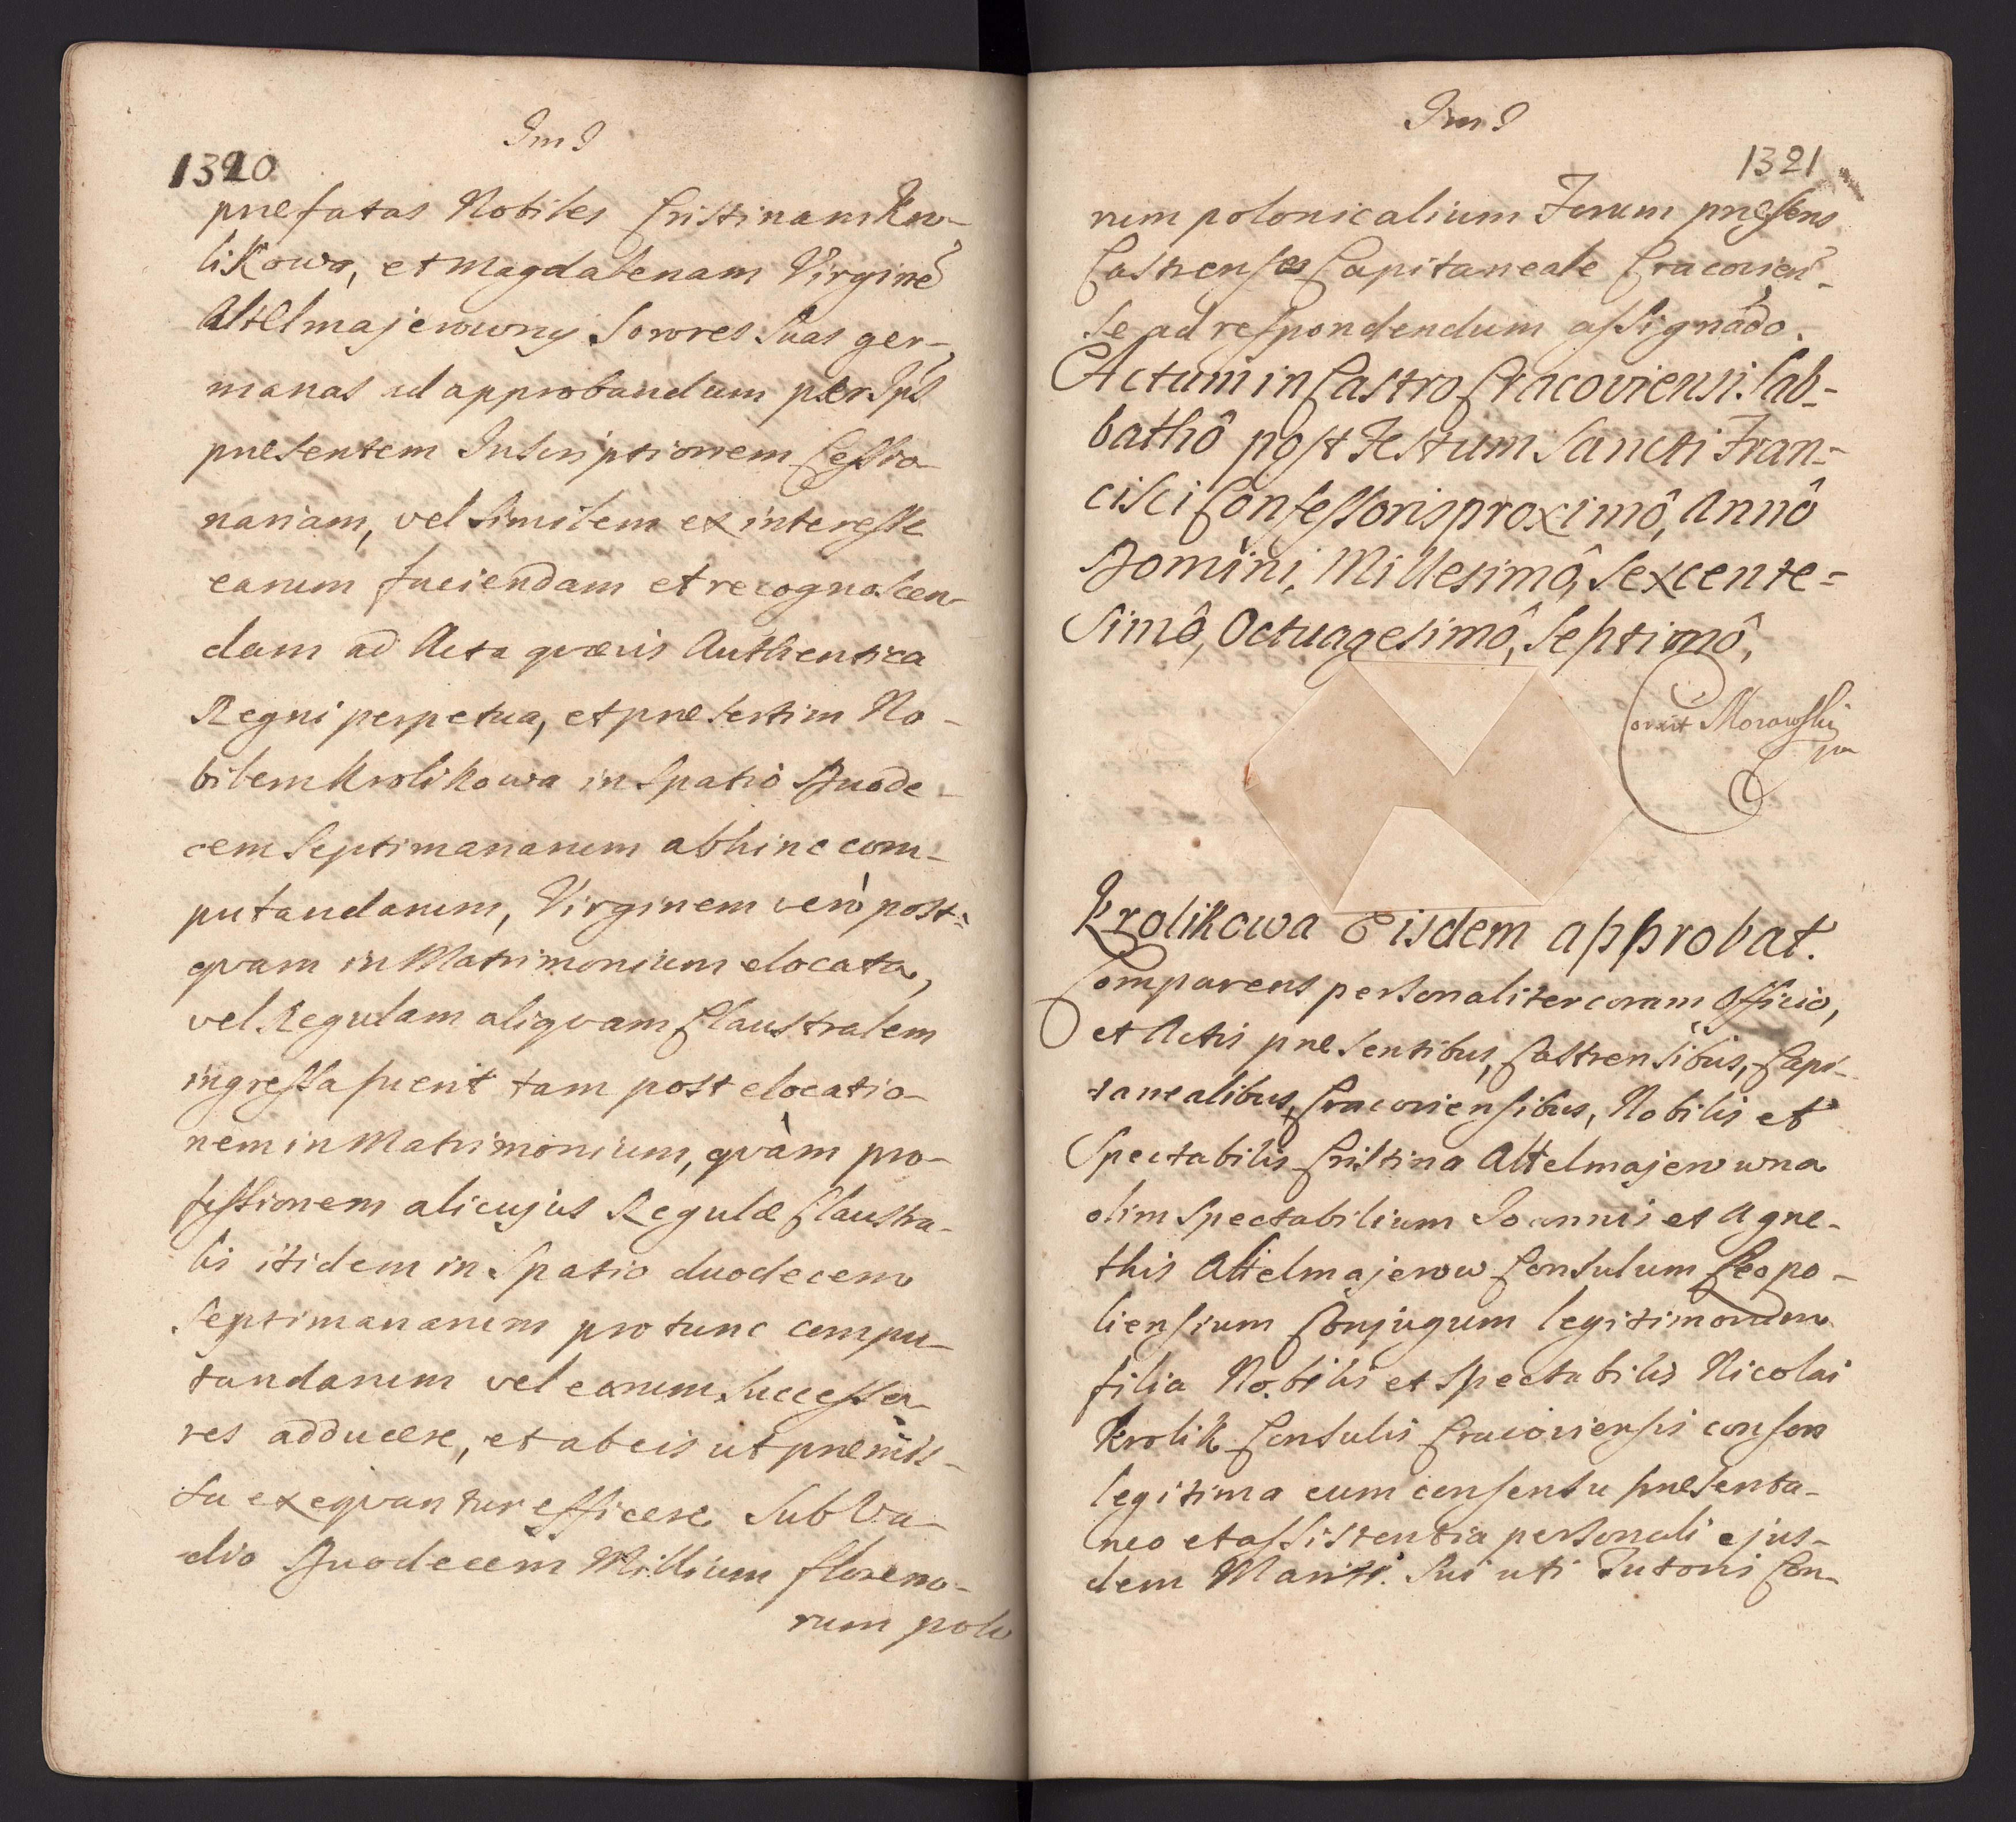 Im I
1320
præfatas Nobiles Cristinam Kro-
likowa, et Magdalenam Virginē
Altelmajerowny Sorores Suas ger-
manas ad approbandum per Ips
præsentem Inscriptionem Cessio-
nariam, vel similem ex interesse
earum faciendam et recognoscen-
dam ad Acta qvævis Authentica
Regni perpetua, et præsertim No-
bilem Krolikowa in Spatiô Duode-
cem Septimanarum abhinc com-
putandarum, Virginem verò post-
qvam in Matrimonium elocata,
vel Regulam aliqvam Claustralem
ingressa fuerit tam post elocatio-
nem in Matrimonium, qvàm pro-
fessionem alicujus Regulæ Claustra-
lis itidem in Spatio duodecem
Septimanarum pro tunc compu-
tandarum vel earum Successo-
res adducere, et ab eis ut præmis-
sa exeqvantur efficere Sub Va-
dio Duodecem Millium floreno-
rum polo
Im I
1321
rum polonicalium Forum præsens
Castrense Capitaneale Cracovien̄-
se ad respondendum assignādo.
Actum in Castro Cracoviensi. Sab-
bathô post Festum Sancti Fran-
cisci Confessoris proximô, Annô
Domini, Millesimô, Sexcente-
simô, Octuagesimô, Septimô,
Corexit Morawski
mp
Krolikowa Eisdem approbat.
Comparens personaliter coram Officio,
et Actis præsentibus, Castrensibus, Capi-
tanealibus, Cracoviensibus, Nobilis et
Spectabilis Cristina Altelmajerowna
olim Spectabilium Joannis et Agne-
this Altelmajerow Consulum Leopo-
liensium Conjugum legitimorum
filia Nobilis et Spectabilis Nicolai
Krolik Consulis Cracoviensis consors
legitima cum consensu præsenta-
neo et assistentia personali ejus-
dem Mariti Sui uti Tutoris Con-